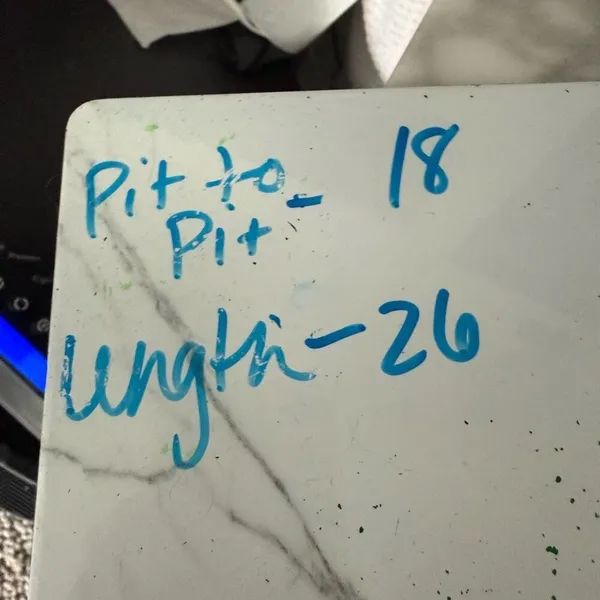 Pit to - 18
Pit
length - 26